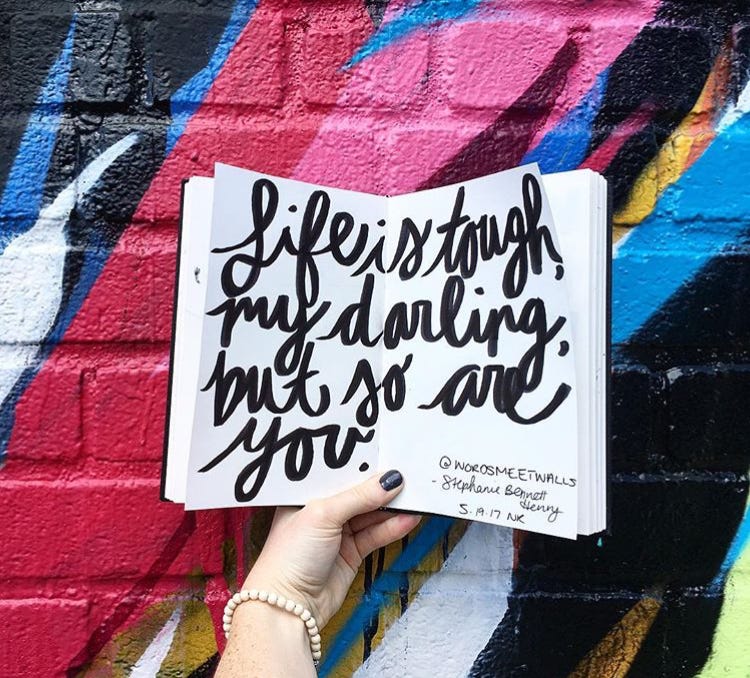 Life is tough,
my darling,
but so are
you.
@WORDSMEETWALLS
- Stephanie Bennett
Henry
5.19.17 NK